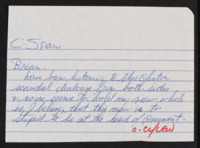 C-Span
Brian,
have been listening to this Clinton
scandal dialogue from both sides
& no one seems to hold my view which
is, I believe that this man is to
stupid to be at the head of government.